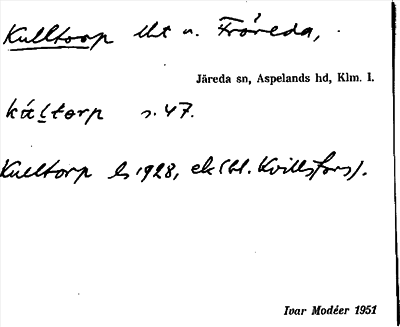 Kulltorp lht u. Fröreda,
Järeda sn, Aspelands hd, Klm. l.
kältorp s. 47.
Kulltorp 1928, ek (bl. Kvillsfors).
Ivar Modéer 1951